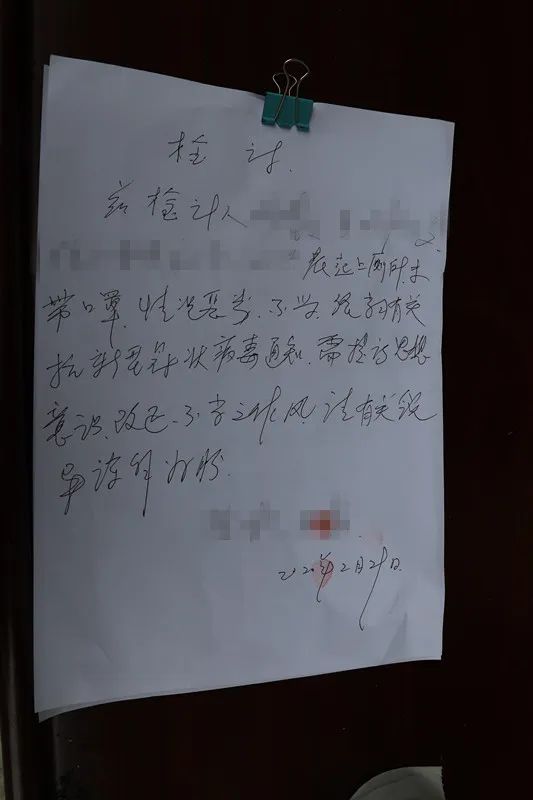 检讨
兹检讨人
晨起上厕所未
带口罩,情况恶劣,不学党和有关
抗新冠异状病毒通知,需提高思想
意识,改正不 工作作风,请有关领
导谅解为盼.
2020年2月21日